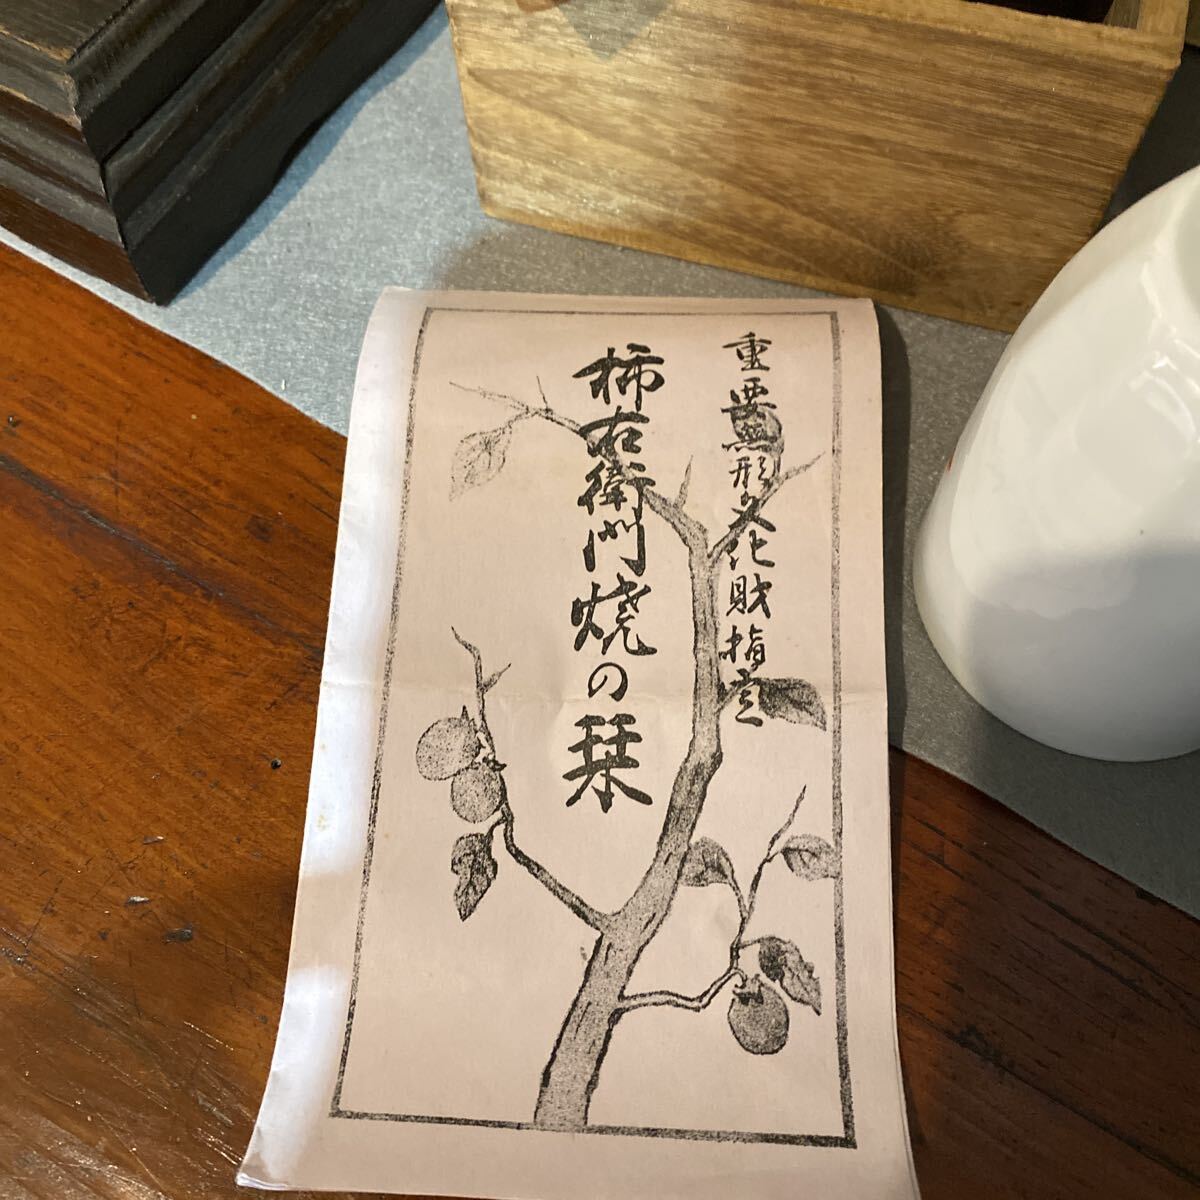 重要無形文化財指定
柿右衛門焼の栞